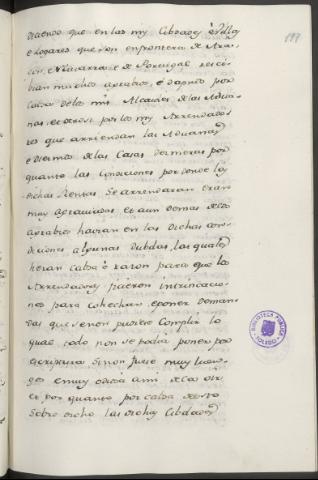 diciendo que en las mis Cibdades è Villas
e Logares que son en frontera de Ara-
gon, e Navarra, e de Portugal resci-
bian muchos agrabios, è dapnos por
cabsa delos mis Alcaldes de las Adua-
nas, et otrosi por los mis Arrendado-
res que arriendan las Aduanas
e diezmo de las Casas dezmeras por
quanto las condiciones por donde las
dichas Rentas se arrendaran eran
muy agraviadas et aun demas destos
agrabios havian en las dichas con-
diciones algunas dubdas, las quales
heran cabsa è razon para que los
Arrendadores ficieron intrincacio-
nes para cohechar, e poner deman-
das que se non pudiese complir lo
qual todo non se podia poner por
escriptura si non fuese muy luen-
ges e muy odiosa a mi de la oir
et por quanto por cabsa desto
sobre dicho las dichas Cibdades
199
BIBLIOTECA PUBLICA
TOLEDO